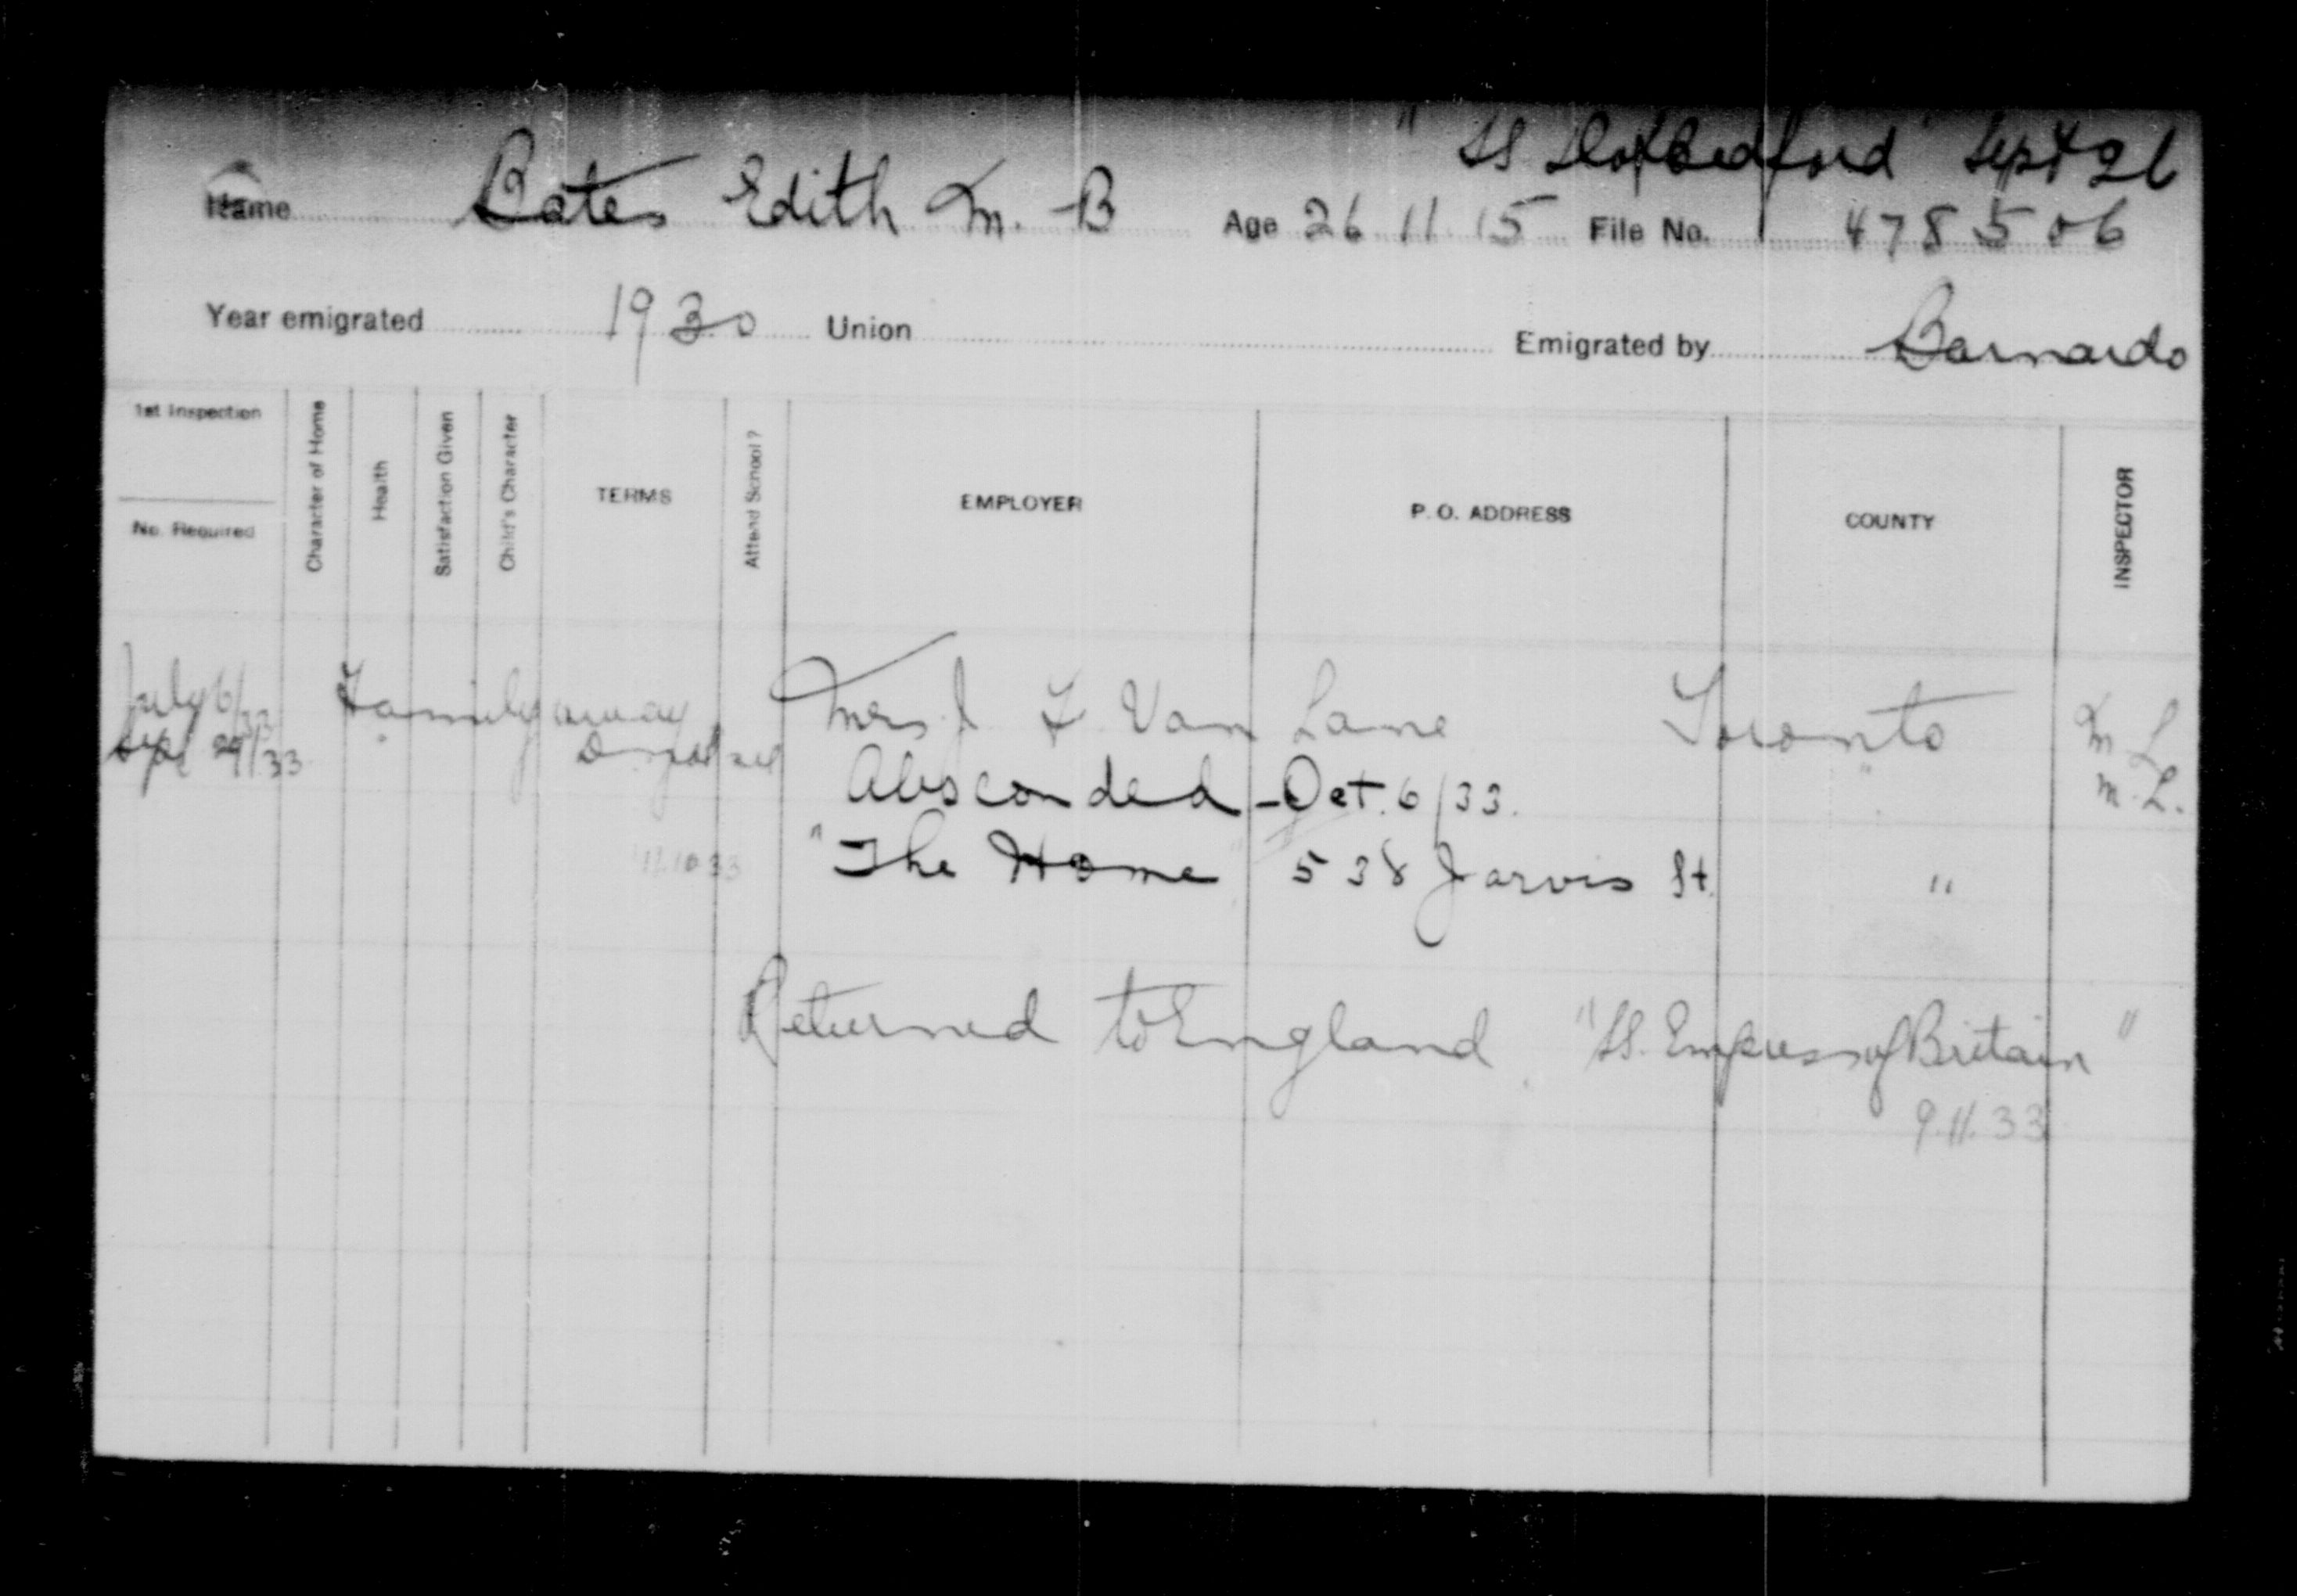 "SS D of Bedford" Sept 26
Name Bates Edith M. B Age 26 11 15 File No. 478506
Year emigrated 1930 Union Emigrated by Barnardo
1st Inspection
No. Required
Character of Home
Health
Satisfaction Given
Child's Character
TERMS
Attend School?
EMPLOYER
P. O. ADDRESS
COUNTY
INSPECTOR
July 6/33 Family away Mrs. J F. Van Lane Toronto M L
Sept 29/33 " M. L.
Absconded - Oct. 6/33.
11.10.33 "The Home" 538 Jarvis St. "
Returned to England "SS. Empress of Britain"
9.11.33